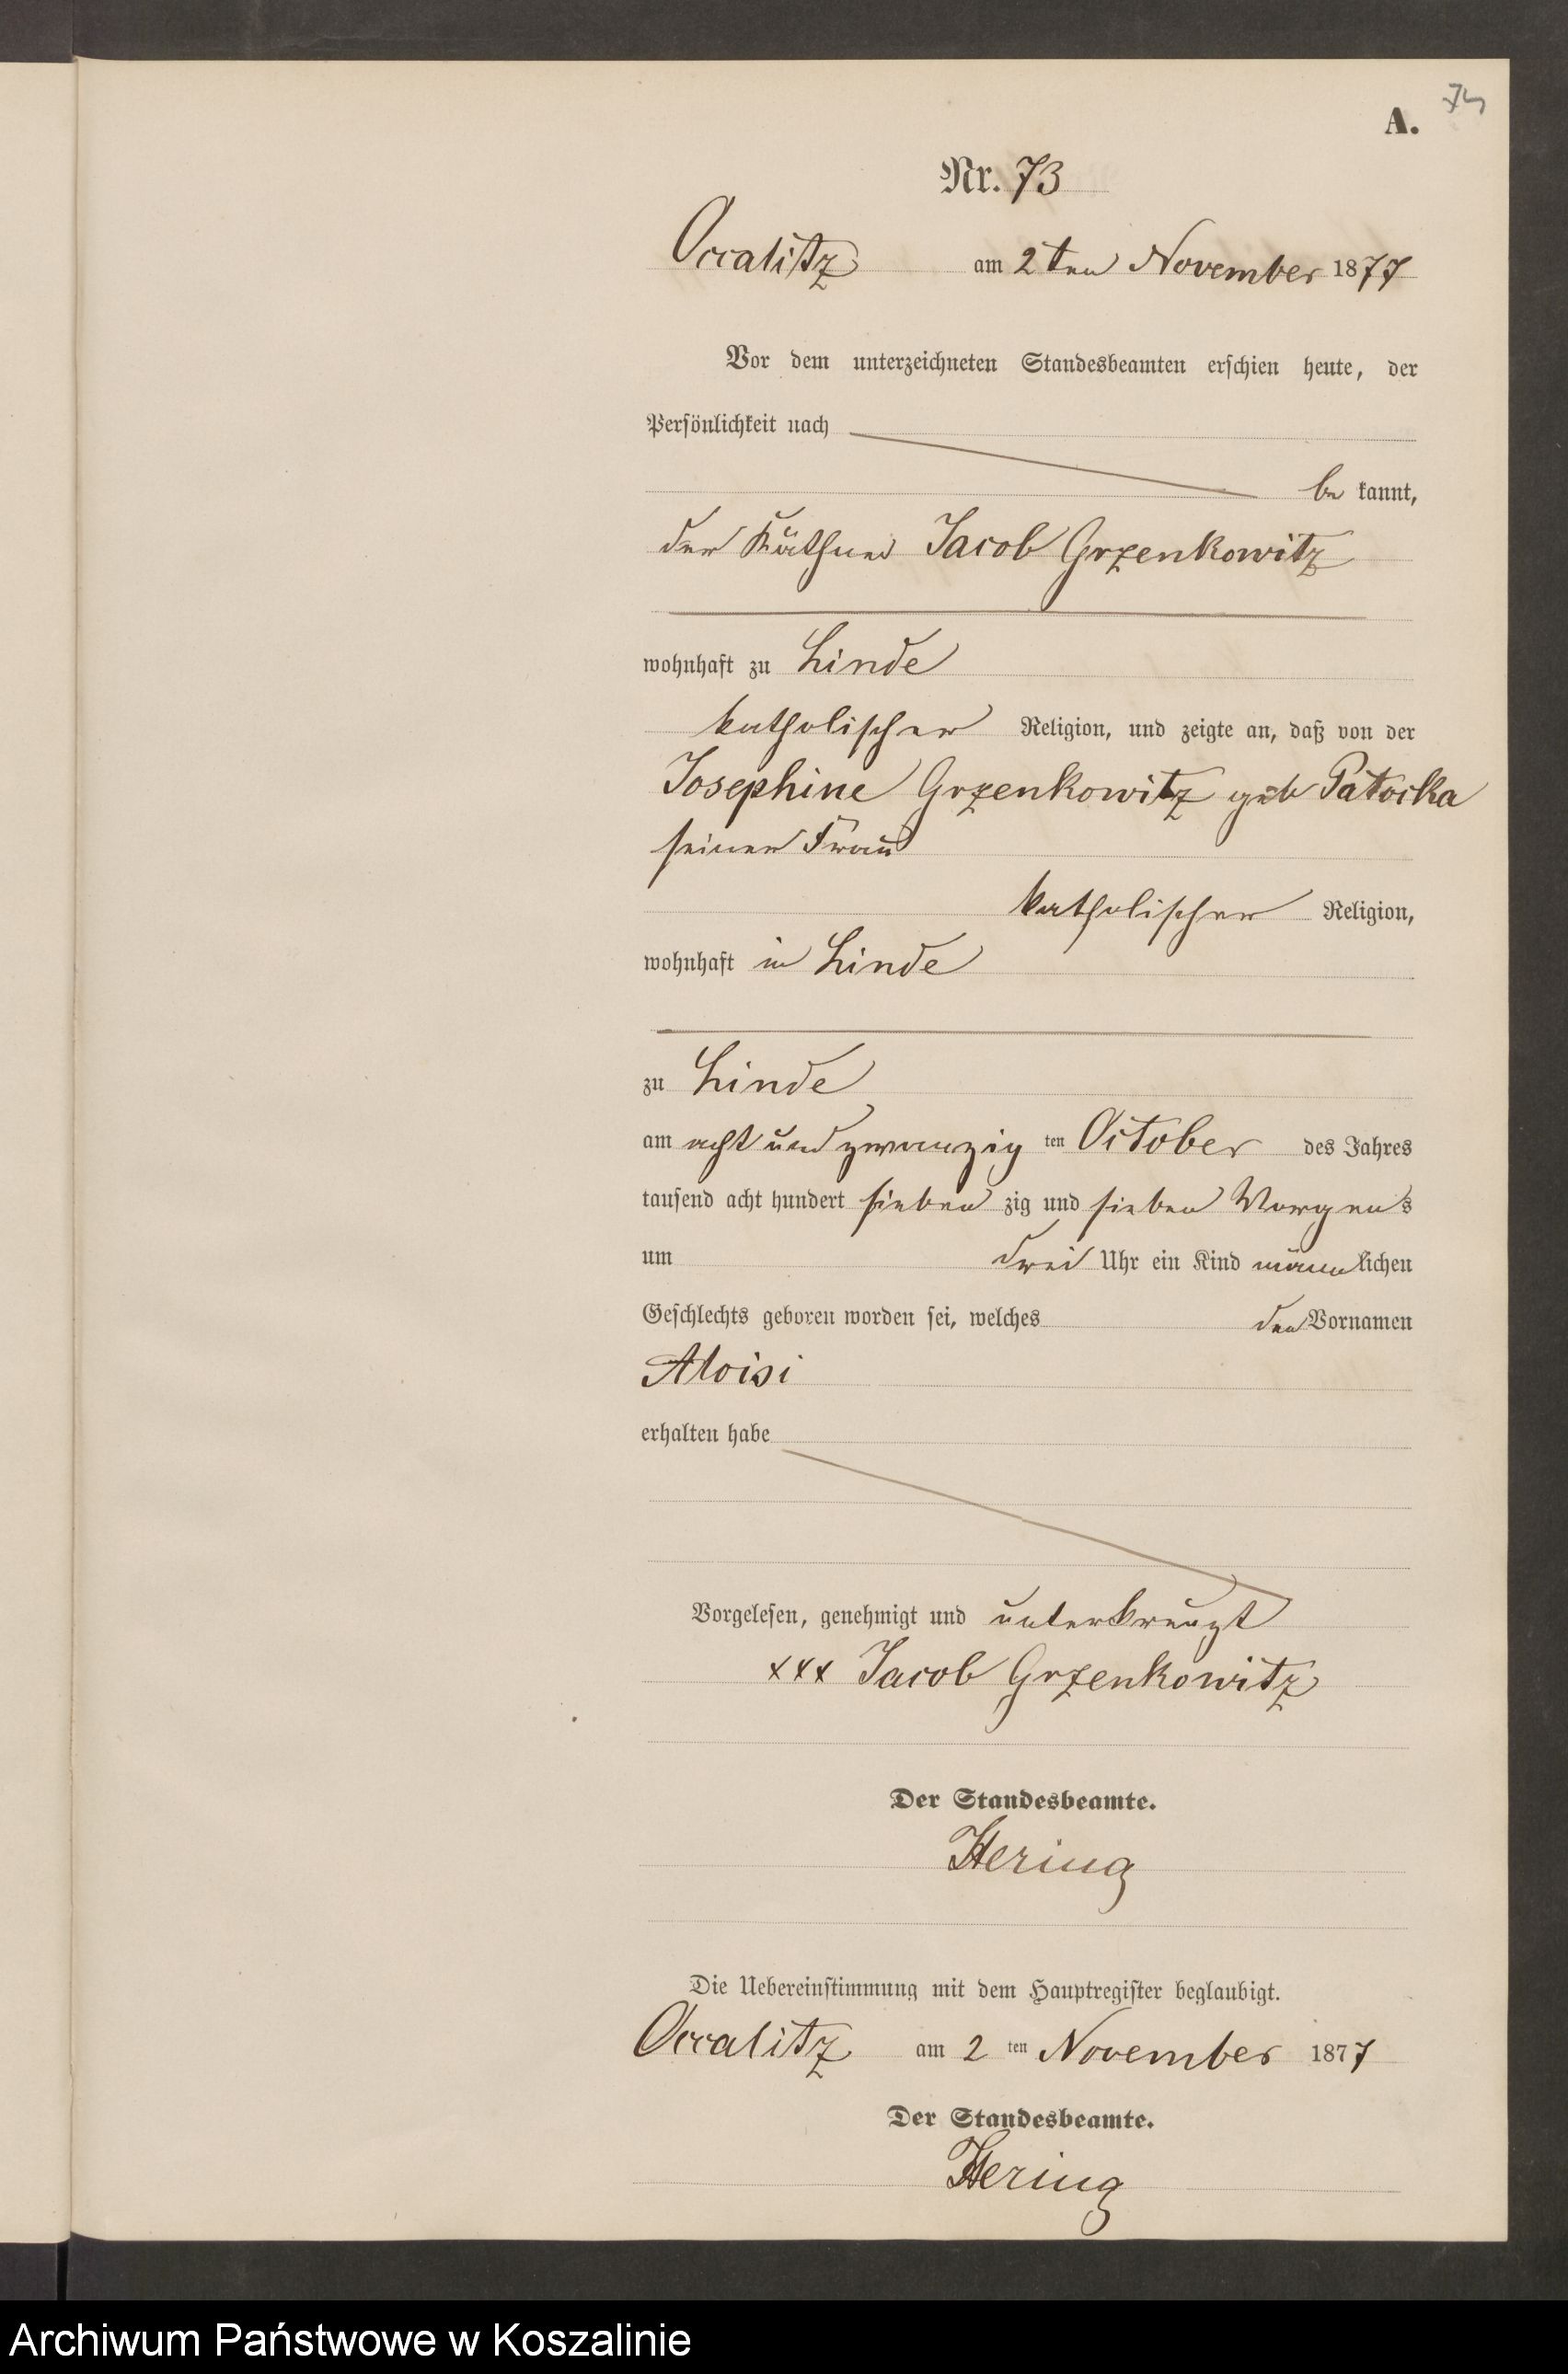 74
A.
Nr. 73
Occalitz am 2ten November 1877
Vor dem unterzeichneten Standesbeamten erschien heute, der
Persönlichkeit nach
be kannt,
der Käthner Jacob Grzenkowitz
wohnhaft zu Linde
katholischer Religion, und zeigte an, daß von der
Josephine Grzenkowitz geb Patocka
seiner Frau
katholischer Religion,
wohnhaft in Linde
zu Linde
am acht und zwanzig ten October des Jahres
tausend acht hundert sieben zig und sieben Morgens
um drei Uhr ein Kind männlichen
Geschlechts geboren worden sei, welches den Vornamen
Aloisi
erhalten habe
Vorgelesen, genehmigt und unterkreuzt
xxx Jacob Grzenkowitz
Der Standesbeamte.
Hering
Die Uebereinstimmung mit dem Hauptregister beglaubigt.
Occalitz am 2 ten November 1877
Der Standesbeamte.
Hering
Archiwum Państwowe w Koszalinie